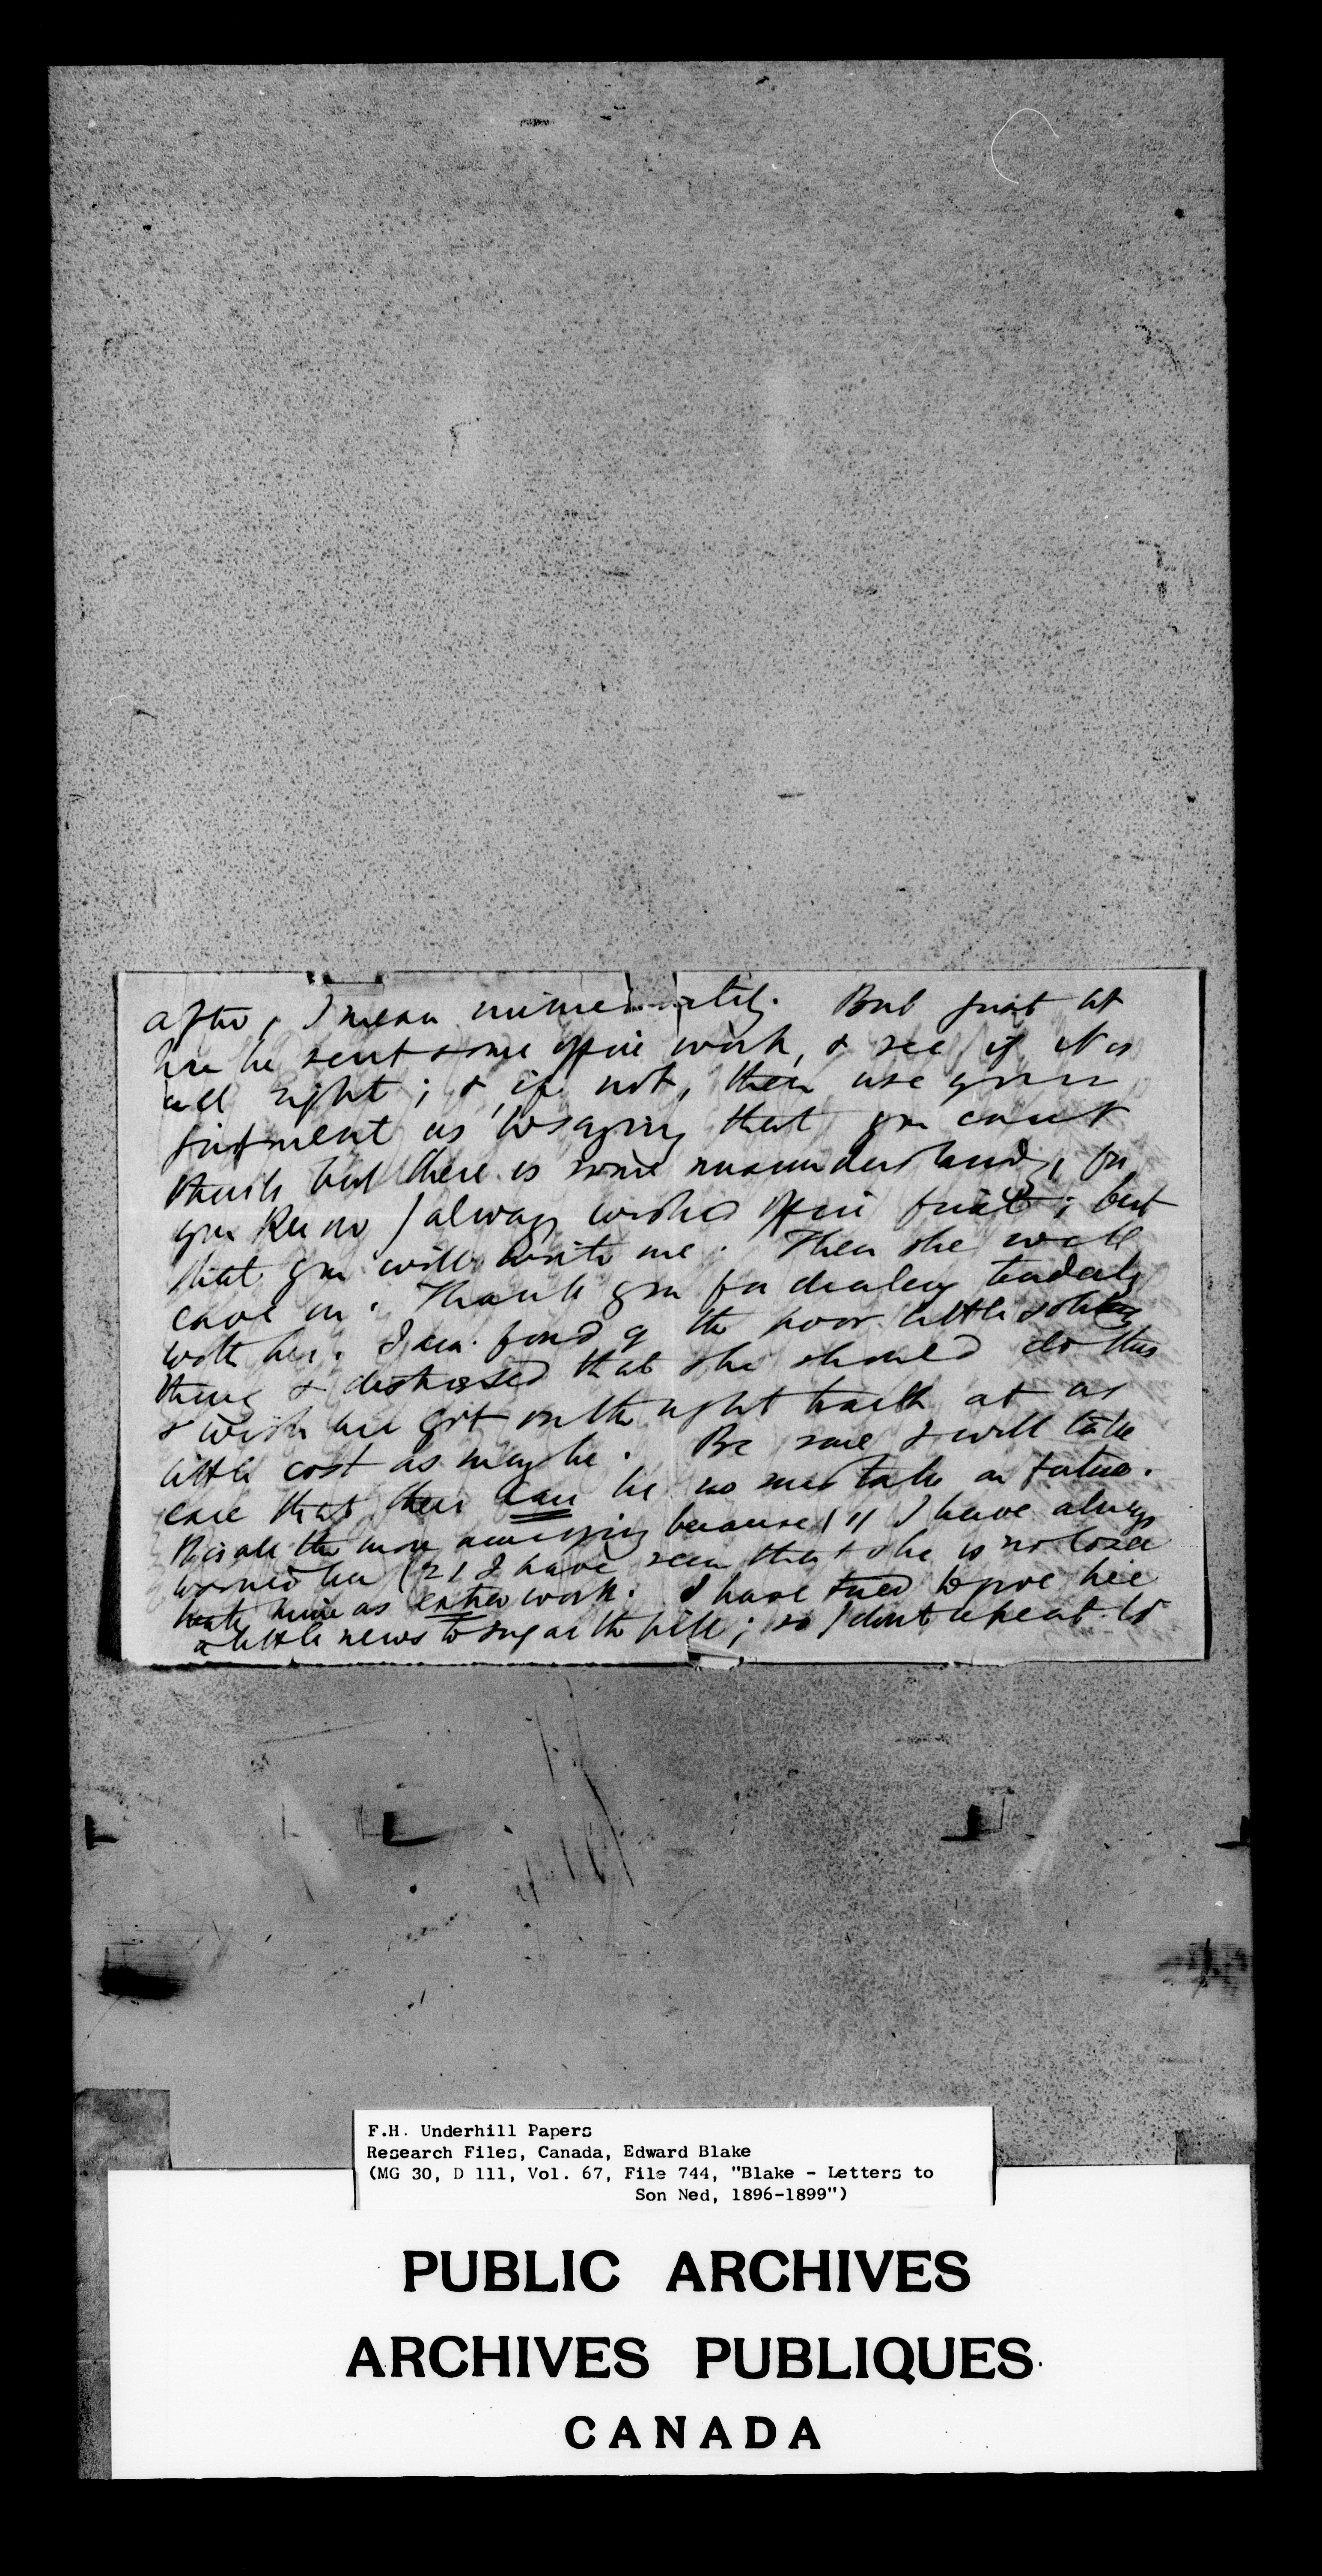 after, I mean immediately. But just let
her be sent some office work, & see if it is
all right; & if not, then use your
judgment as to saying that you can't
think but there is some misunderstanding, for
you know I always wished office first; but
that you will write me. Then she will
cave in. Thank you for dealing tenderly
with her. I am fond of the poor little
thing & distressed that she should do this
& wish her got on the right track at as
little cost as may be. Be sure I will take
care that there can be no mistake in future.
It is all the more annoying because (1) I have always
warned her (2) I have seen that she is no loser
mine as extra work. I have tried to give her
a little news to sugar the pill; so I don't repeat it
F.H. Underhill Papers
Research Files, Canada, Edward Blake
(MG 30, D 111, Vol. 67, File 744, "Blake - Letters to
Son Ned, 1896-1899")
PUBLIC ARCHIVES
ARCHIVES PUBLIQUES
CANADA